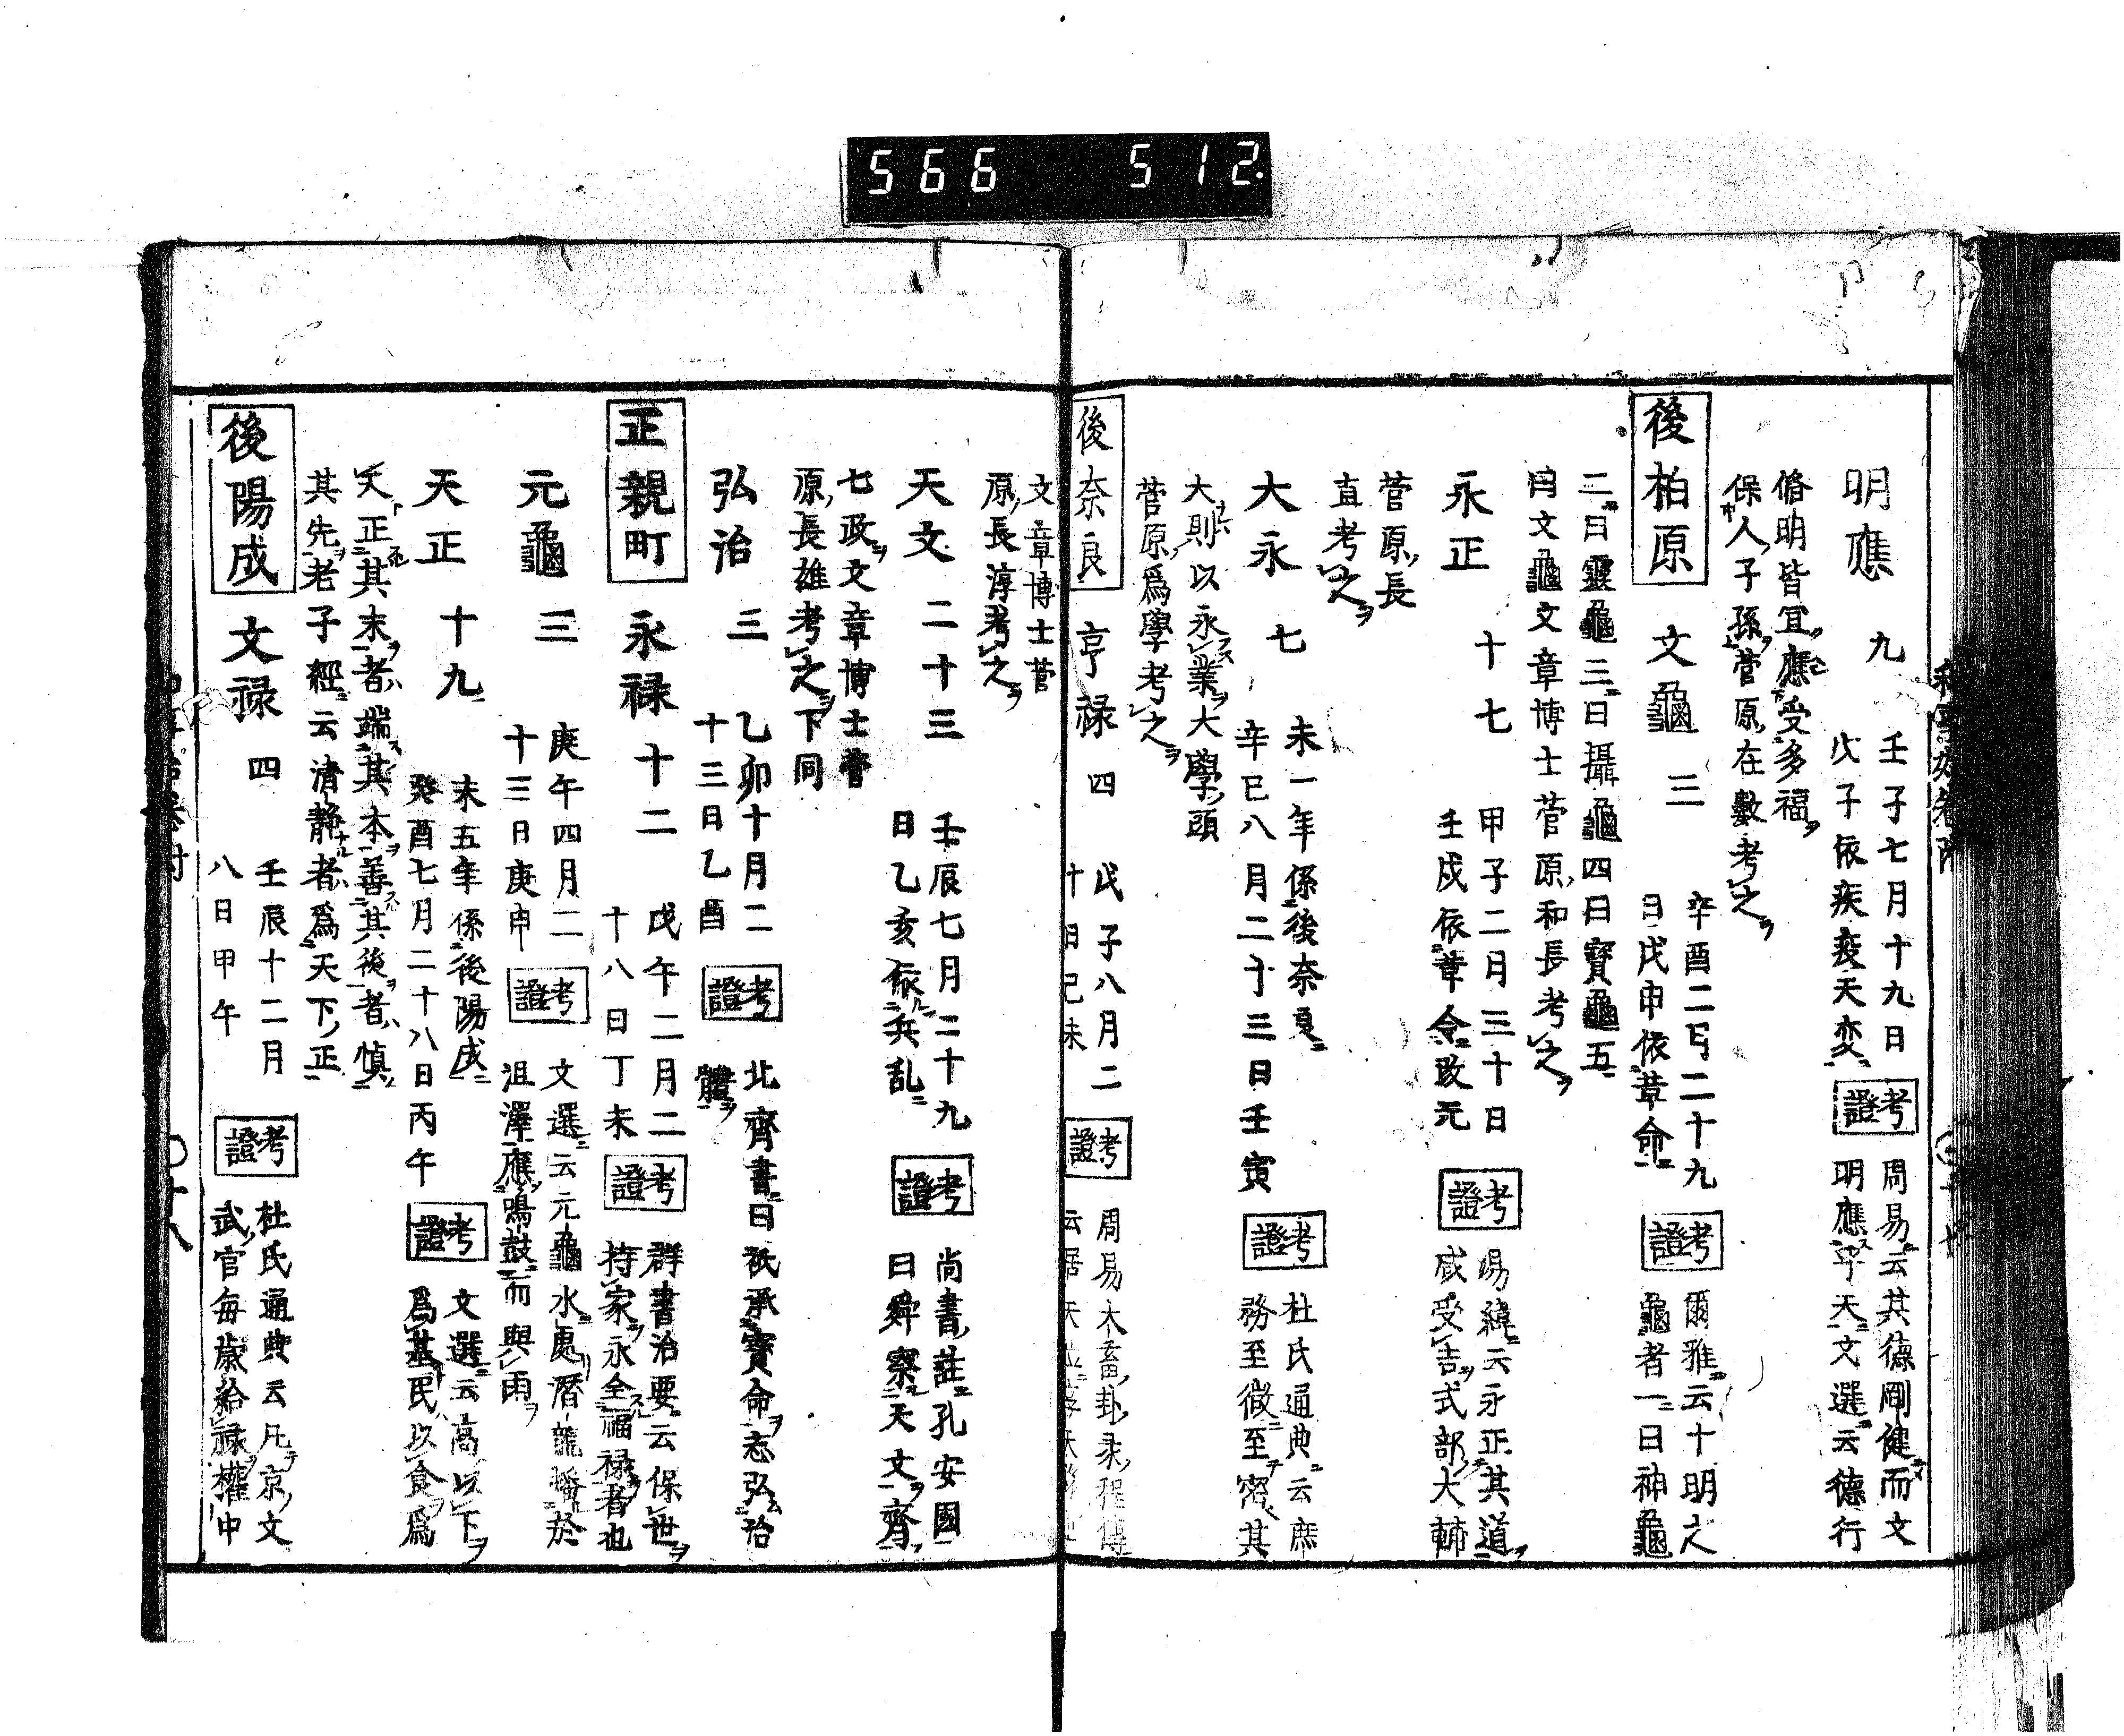 566 512
明應 九
壬子七月十九日
戊子依疾疫天変
考證
周易云其德剛健而文
明應乎天文選云德行
脩明皆宜應受多福
保人子孫菅原在數考之
後柏原
文龜 三
辛酉二月二十九
日戊申依革命
考證
爾雅云十明之
龜者一曰神龜
二曰靈龜三曰攝龜四曰寶龜五
曰文龜文章博士菅原和長考之
永正 十七
甲子二月三十日
壬戌依革令改元
考證
易緯云永正其道
咸受吉式部大輔
菅原長
直考之
大永 七
未一年係後奈良
辛巳八月二十三日壬寅
考證
杜氏通典云庶
務至微至密其
大則以永業大學頭
菅原為學考之
後奈良
亨禄 四
戊子八月二
十日己未
考證
周易大畜卦彖程傳
文章博士菅
原長淳考之
天文 二十三
壬辰七月二十九
日乙亥依兵乱
考證
尚書註孔安國
曰舜察天文齊
七政文章博士菅
原長雄考之下同
弘治 三
乙卯十月二
十三日乙酉
考證
北齊書曰祇承寶命志弘治
體
正親町
永禄 十二
戊午二月二
十八日丁未
考證
群書治要云保世
持家永全福禄者也
元龜 三
庚午四月二
十三日庚申
考證
文選云元龜水處潛龍蟠於
沮澤應鳴鼓而興雨
天正 十九
未五年係後陽成
癸酉七月二十八日丙午
考證
文選云高以下
為基民以食為
天正其末者端其本善其後者慎
其先老子經云清静者為天下正
後陽成
文禄 四
壬辰十二月
八日甲午
考證
杜氏通典云凡京文
武官每歲給禄權中